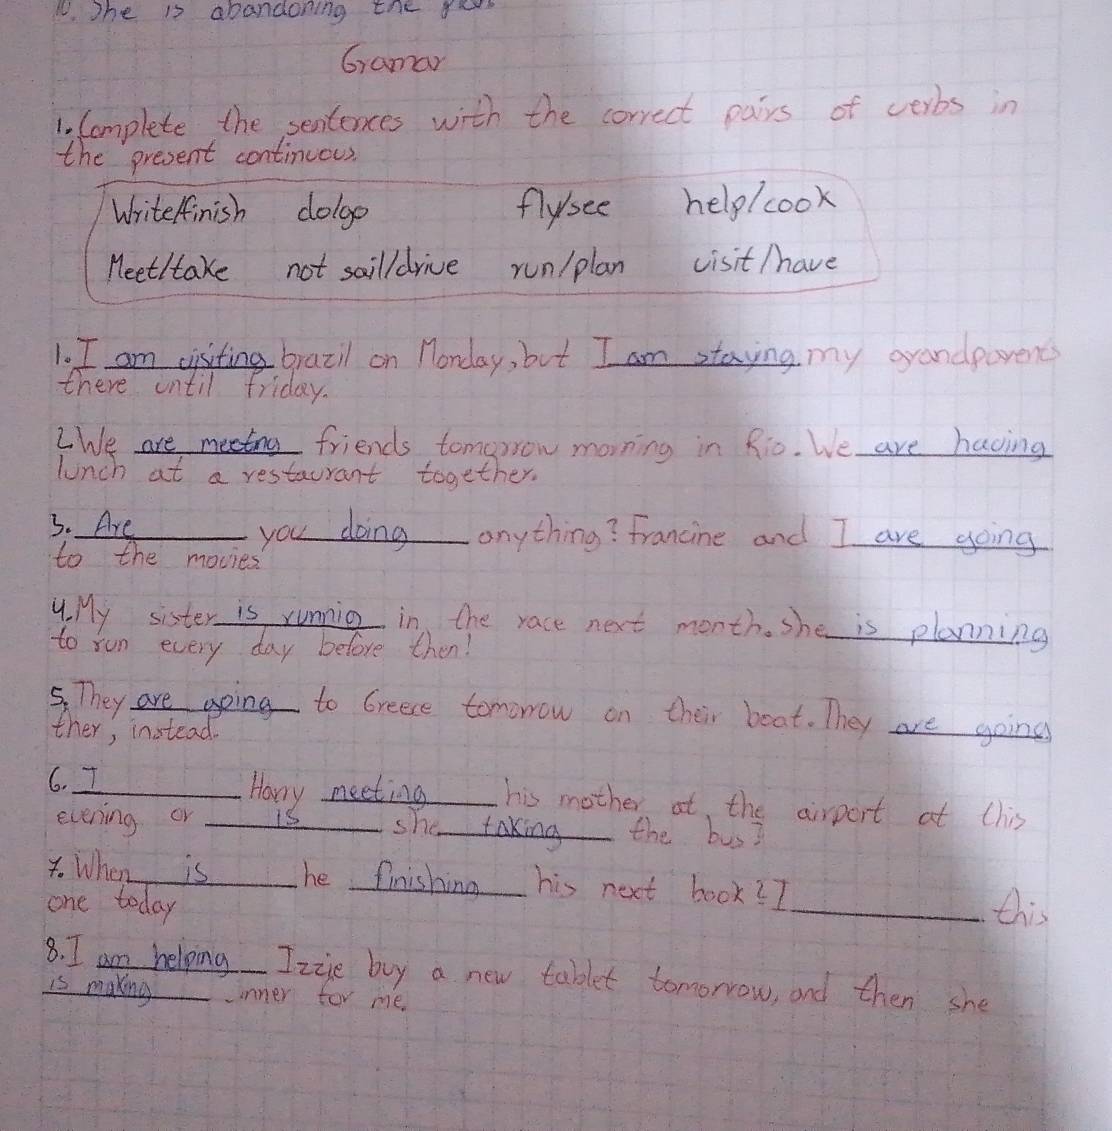 10. She is abandoning the
Gramar
1. Complete the sentences with the correct pairs of verbs in
the present continuous.
Write/finish do/go fly/see help/cook
Meet/take not sail/drive run/plan visit/have
1. I am visiting brazil on Monday, but I am staying my grandparents
there until friday.
2 We are meeting friends tomorrow morning in Rio. We are having
lunch at a restaurant together.
3. Are you doing anything? Francine and I are going
to the movies
4. My sister is runnig in the race next month. She is planning
to run every day before then!
5. They are going to Greece tomorrow on their boat. They are going
ther, instead.
6. I Harry meeting his mother at the airport at this
evening or is she taking the bus?
7. When is he finishing his next book? I this
one today
8. I am helping Izzie buy a new tablet tomorrow, and then she
is making inner for me.